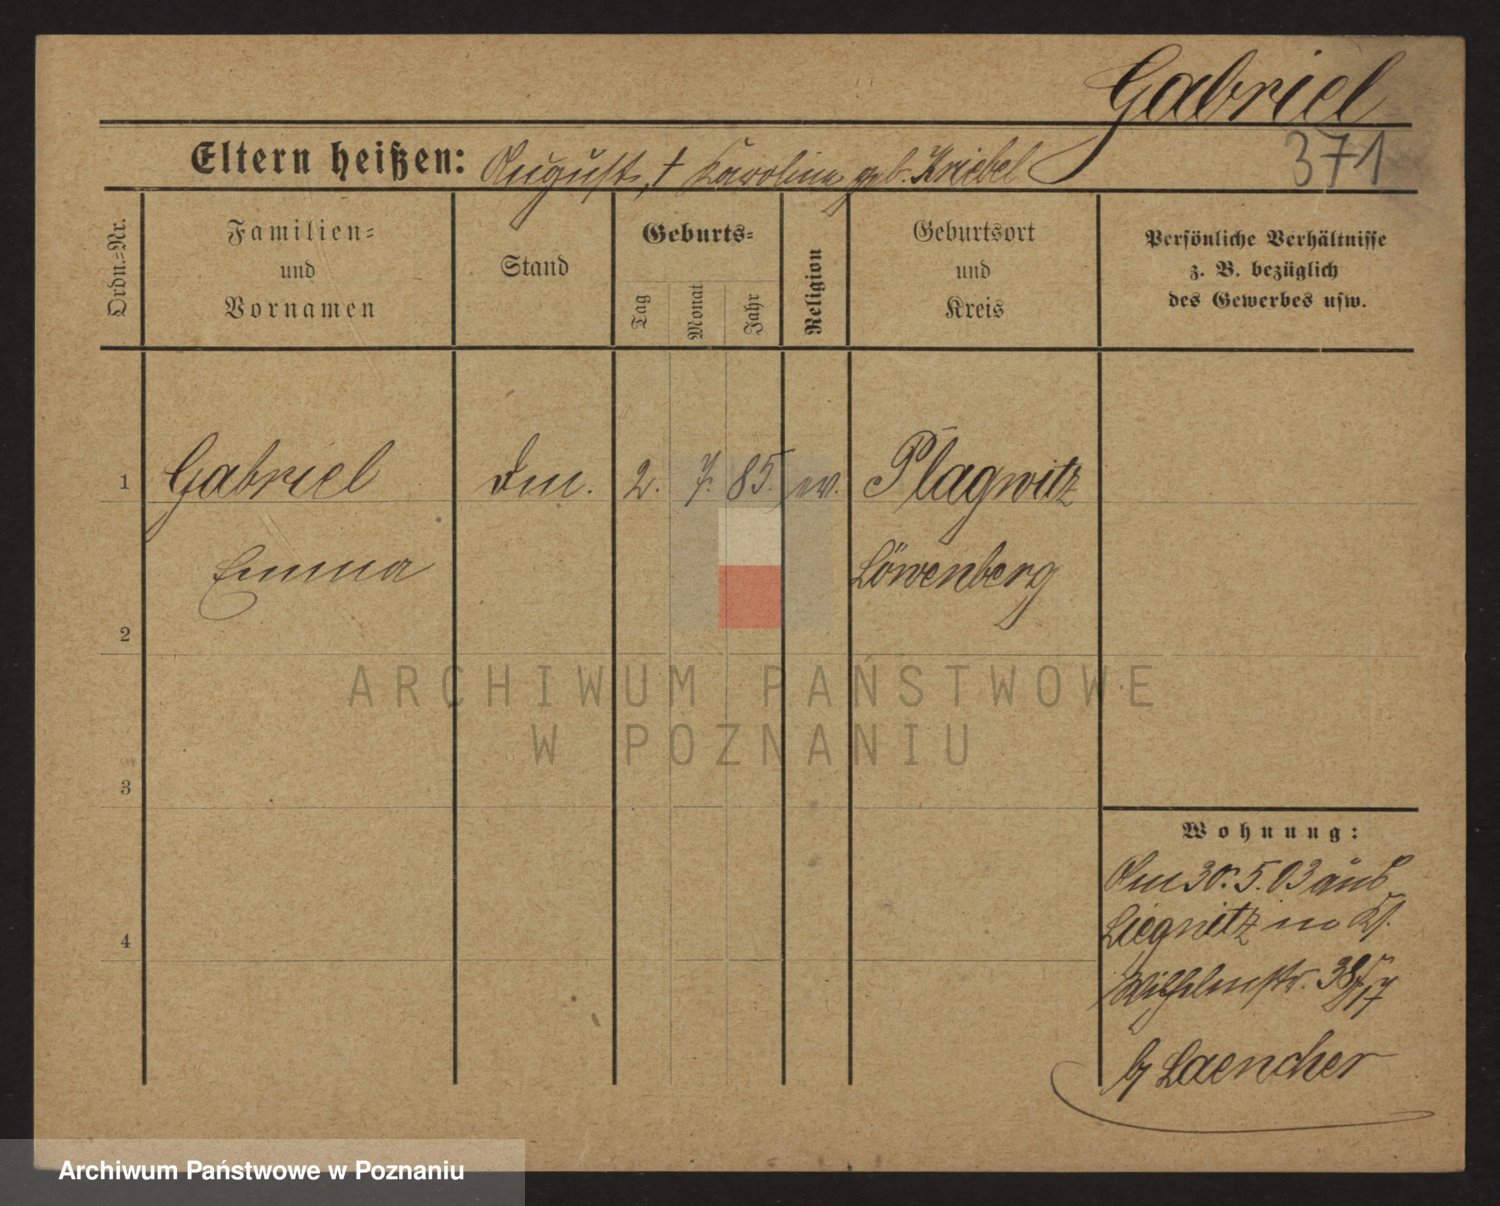 Gabriel
371
Eltern heißen: August, † Karoline geb. Kriebel
Ordn.-Nr.
Familien-
und
Vornamen
Stand
Geburts-
Tag
Monat
Jahr
Religion
Geburtsort
und
Kreis
Persönliche Verhältnisse
z. B. bezüglich
des Gewerbes usw.
1 Gabriel 2. 7. 85. ev. Plagwitz
Emma Löwenberg
2
3
4
ARCHIWUM PAŃSTWOWE
W POZNANIU
Wohnung:
Am 30. 5. 03 aus
Liegnitz
Wilhelmstr.
Laencher
Archiwum Państwowe w Poznaniu